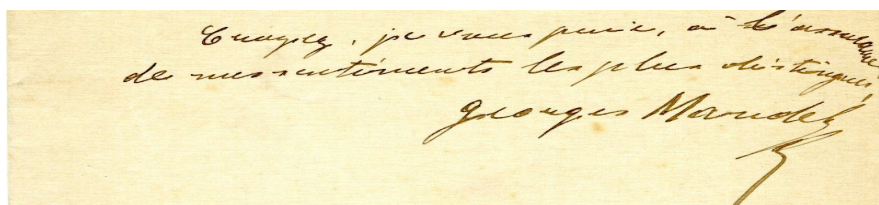 Croyez, je vous prie, à l'assurance
de mes sentiments les plus distingués,
Georges Mandel